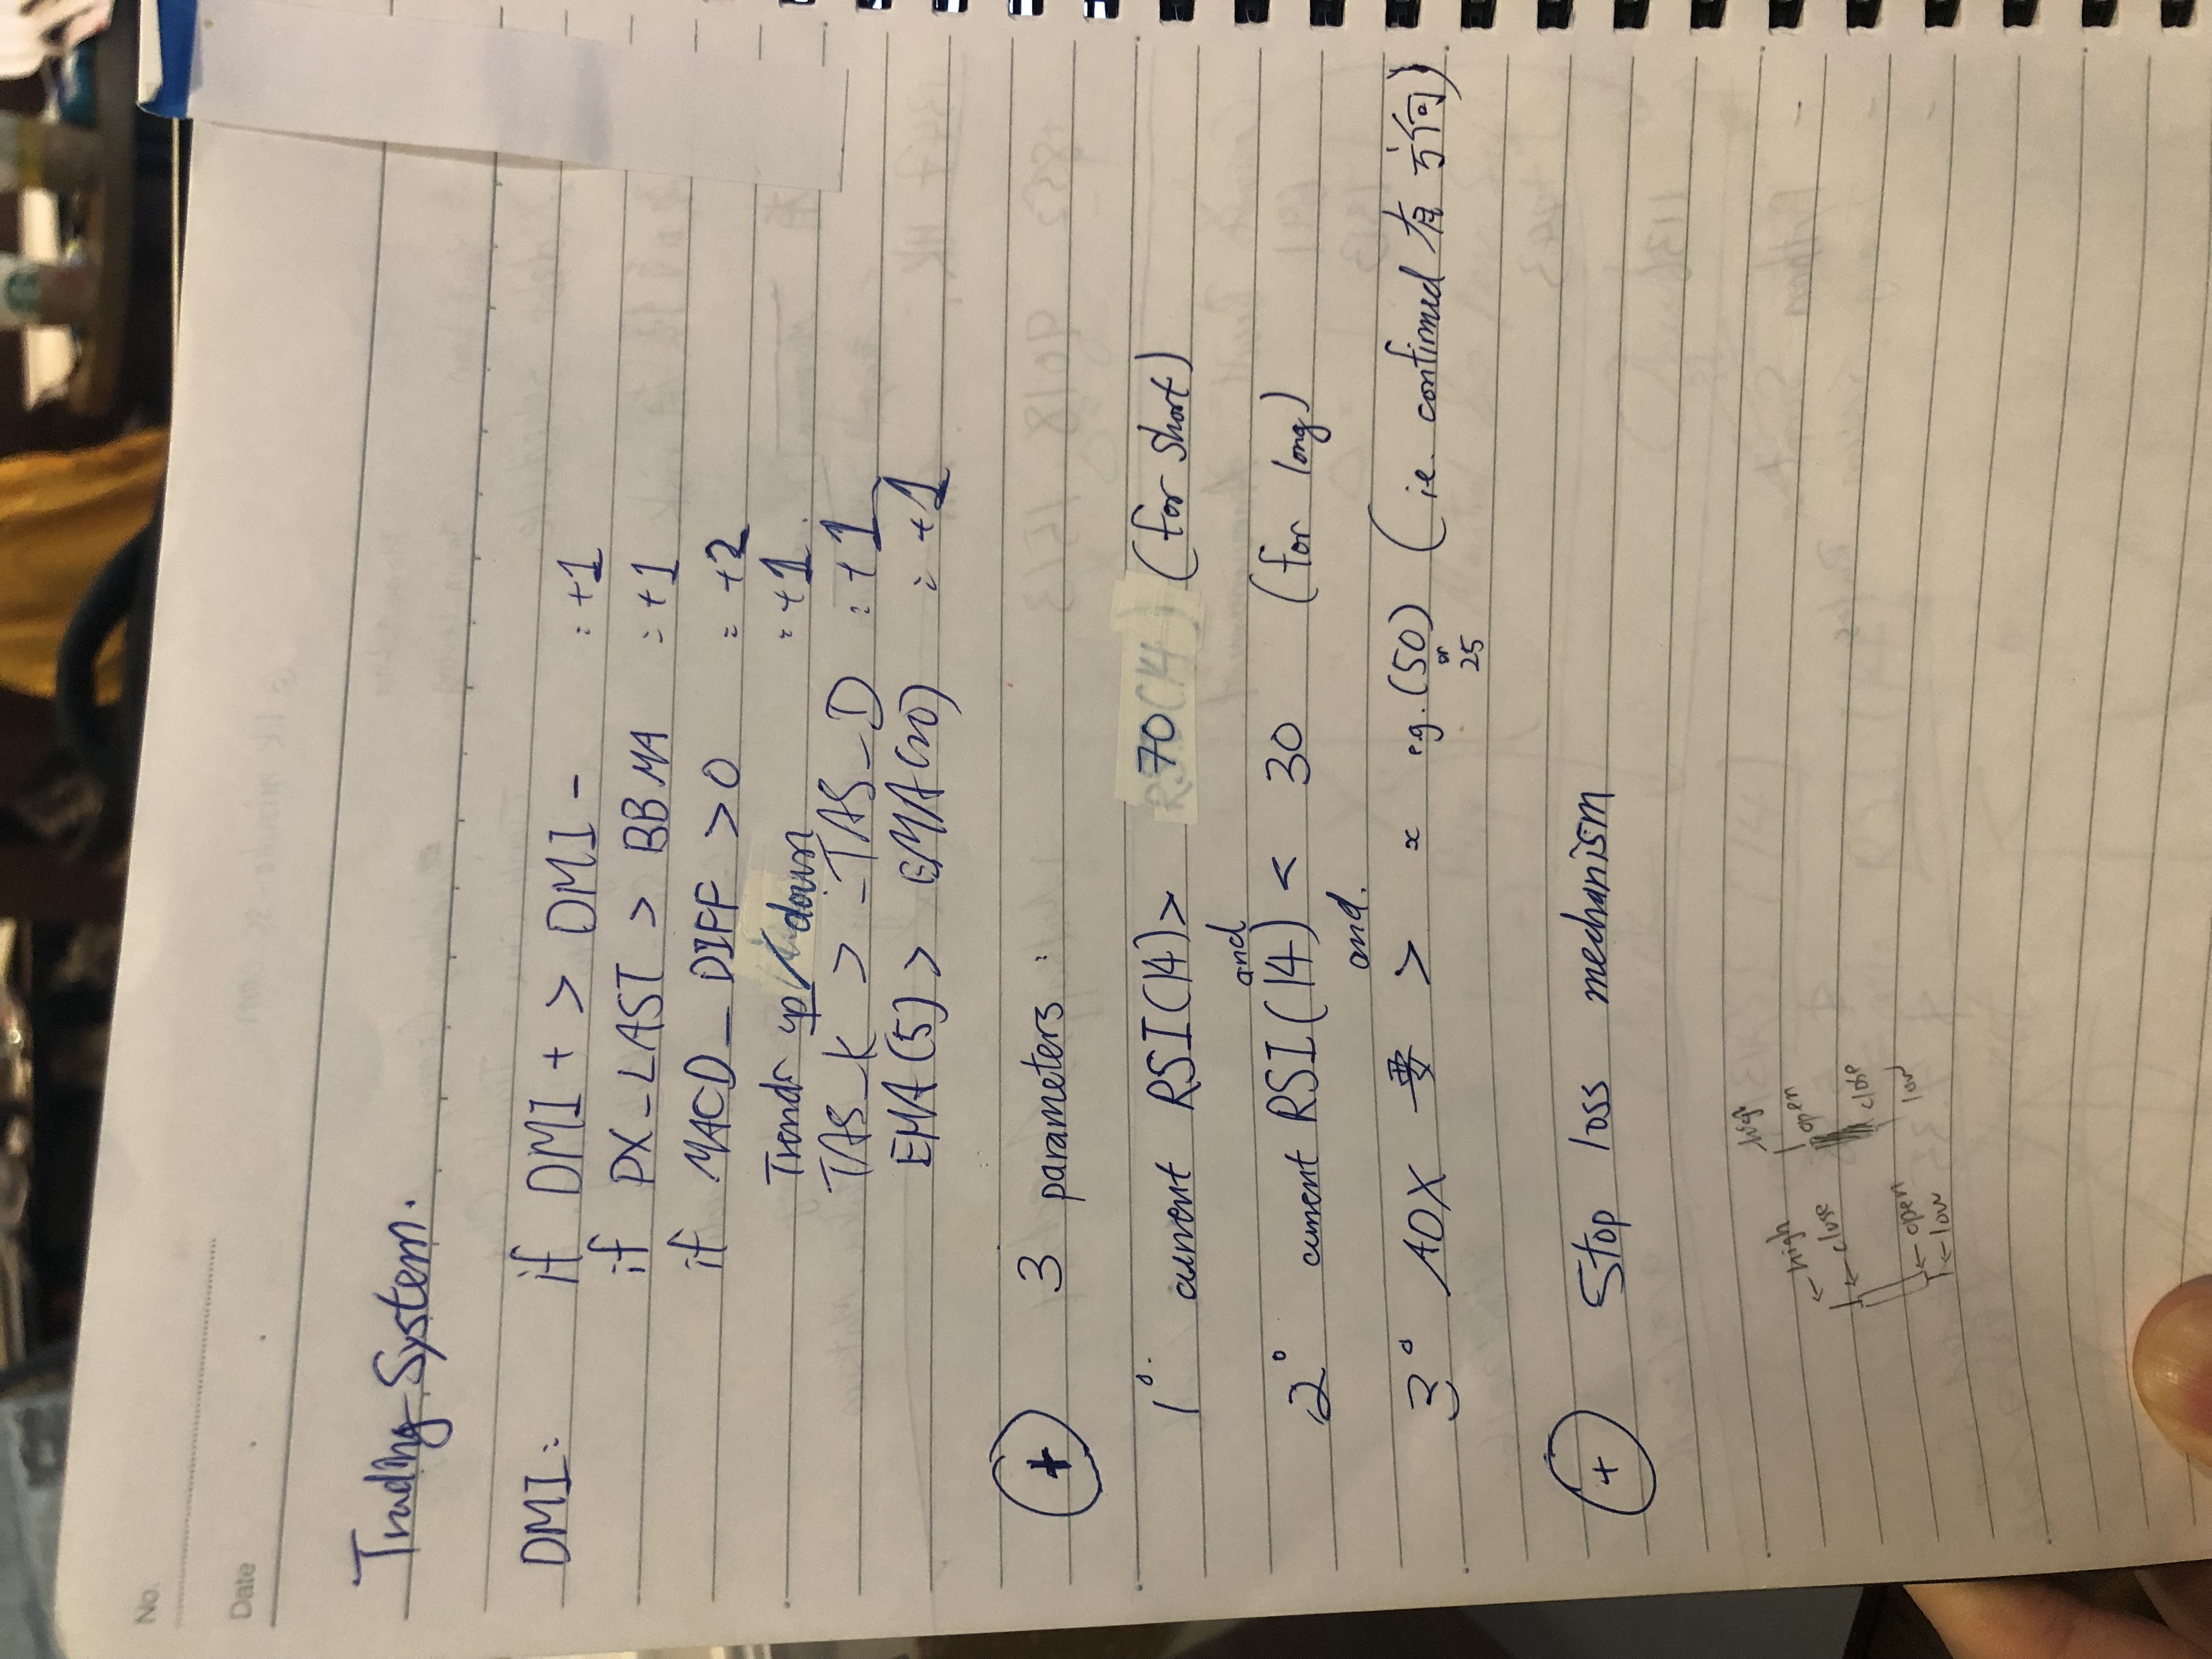 No.
Date
Trading System.
DMI: if DMI + > DMI - : +1
if PX_LAST > BBMA : +1
if MACD_DIFF > 0 : +2
Trends up/down : +1.
TAS_K > TAS_D : +1
EMA(5) > EMA(20) : +1
+ 3 parameters :
1°. current RSI(14) > 70 (for short)
and
2° current RSI(14) < 30 (for long)
and.
3° ADX 要 > x e.g. (50) (ie. confirmed 有方向).
or
25
+ Stop loss mechanism
high
open
close
low
← high
← close
← open
← low